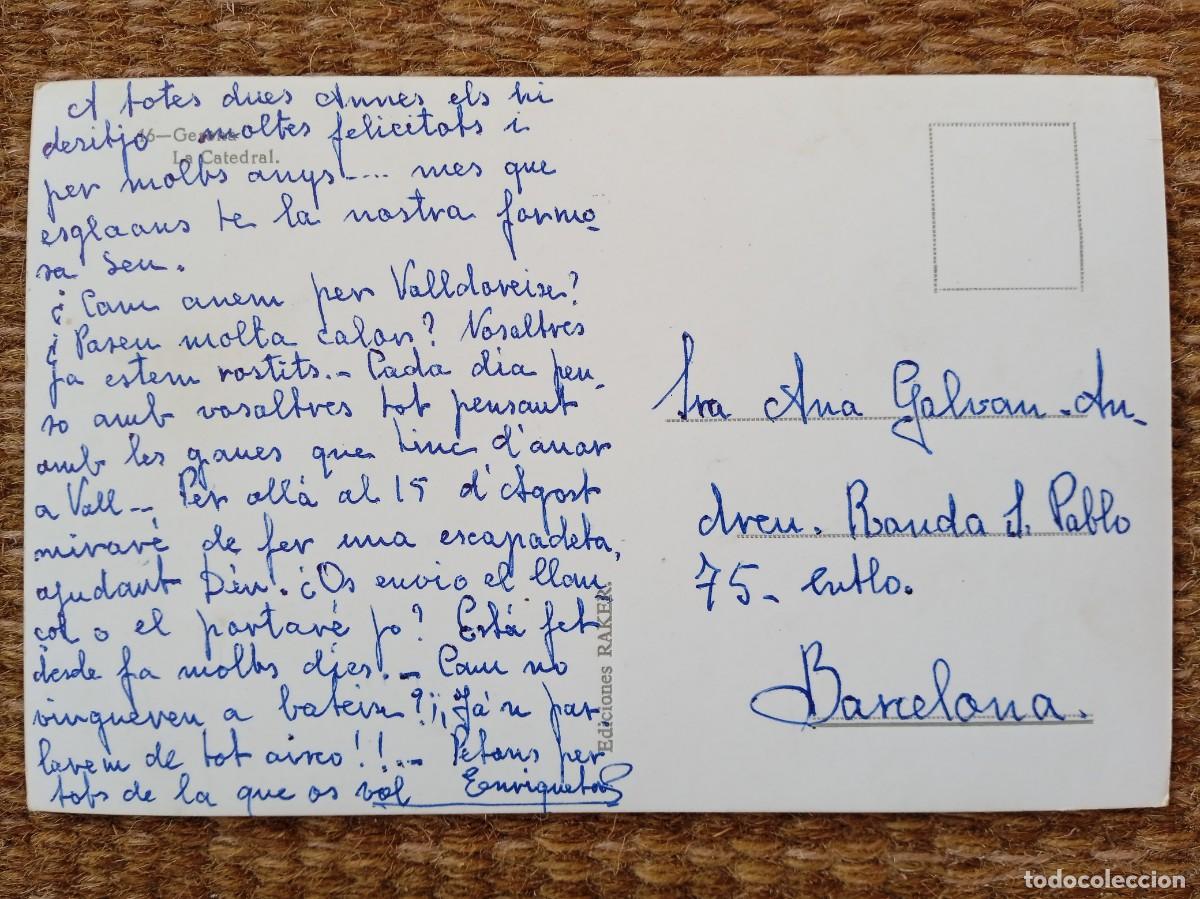 A totes dues Annes els hi
desitjo moltes felicitats i
per molts anys.... mes que
esglaons te la nostra formo-
sa Seu.
¿Com anem per Valldoreix?
¿Paseu molta calor? Nosaltres
ja estem rostits.- Cada dia pen-
so amb vosaltres tot pensant
amb les ganes que tinc d'anar
a Vall-- Per allá al 15 d'Agost
miraré de fer una escapadeta,
ajudant Déu. ¿Os envio el llan
çol o el portaré jo? Está fet
desde fa molts dies.- Com no
vinguereu a bateix?¡¡Já'n par-
larem de tot aixo!!-- Petons per
tots de la que os vol Enriqueta
46—Gerona
La Catedral.
Ediciones RAKER.
Sra Ana Galvan-An-
dreu. Ronda S. Pablo
75- entlo.
Barcelona.
todocoleccion